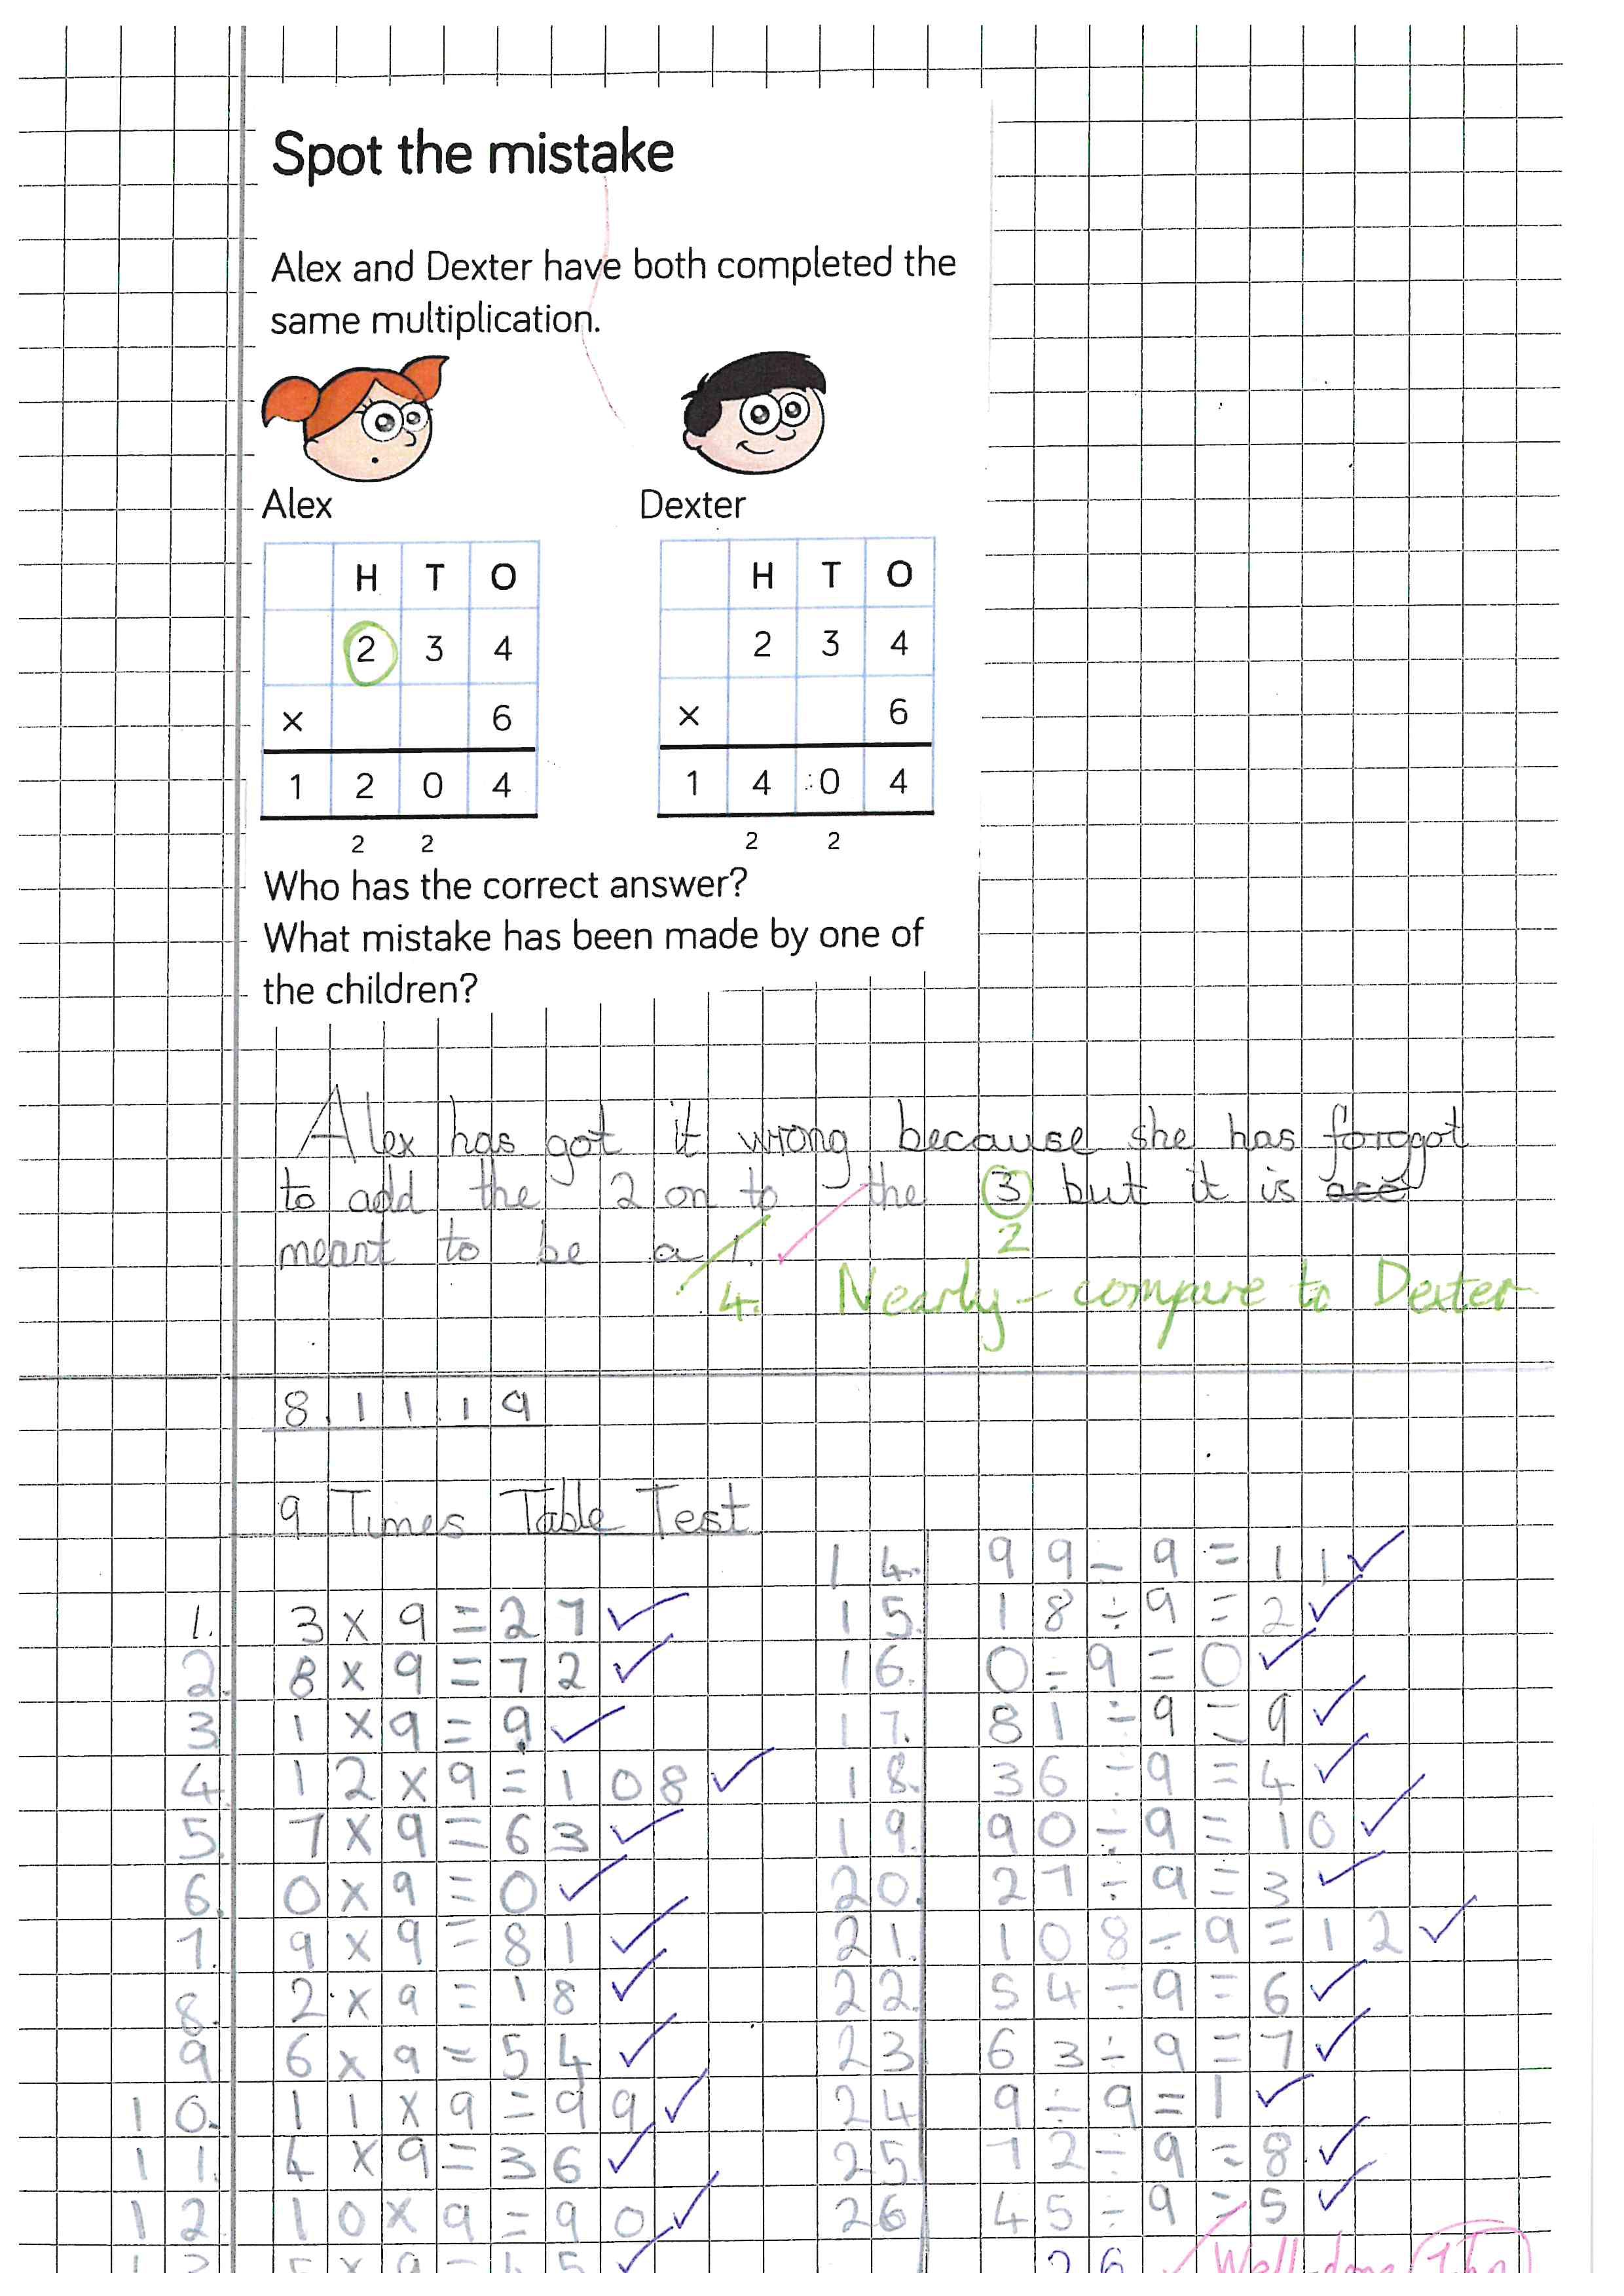 Spot the mistake
Alex and Dexter have both completed the
same multiplication.
Alex
Dexter
H T O
2 3 4
× 6
1 2 0 4
2 2
H T O
2 3 4
× 6
1 4 0 4
2 2
Who has the correct answer?
What mistake has been made by one of
the children?
Alex has got it wrong because she has forggot
to add the 2 on to the 3 but it is
2
meant to be a 1.
4. Nearly - compare to Dexter
8.11.19
9 Times Table Test
1. 3 × 9 = 27
2. 8 × 9 = 72
3. 1 × 9 = 9
4. 12 × 9 = 108
5. 7 × 9 = 63
6. 0 × 9 = 0
7. 9 × 9 = 81
8. 2 × 9 = 18
9 6 × 9 = 54
10. 11 × 9 = 99
11. 4 × 9 = 36
12 10 × 9 = 90
13 5 × 9 = 45
14. 99 ÷ 9 = 11
15. 18 ÷ 9 = 2
16. 0 ÷ 9 = 0
17. 81 ÷ 9 = 9
18. 36 ÷ 9 = 4
19. 90 ÷ 9 = 10
20. 27 ÷ 9 = 3
21. 108 ÷ 9 = 12
22. 54 ÷ 9 = 6
23 63 ÷ 9 = 7
24 9 ÷ 9 = 1
25 72 ÷ 9 = 8
26 45 ÷ 9 = 5
26 Well done